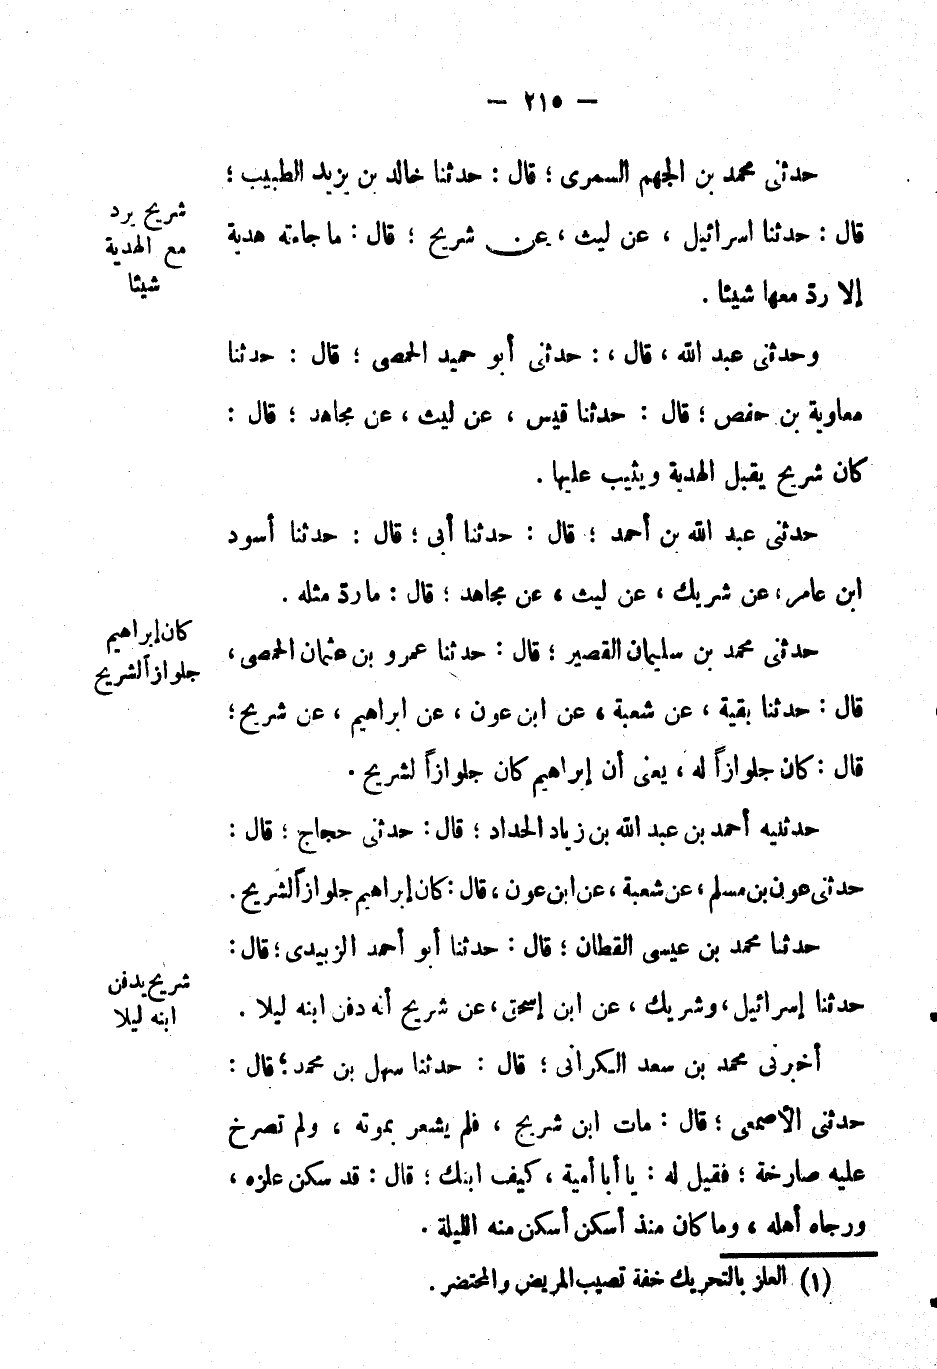 — ٢١٥ —
حدثنى محمد بن الجهم السمرى ؛ قال : حدثنا خالد بن يزيد الطبيب ؛
قال : حدثنا اسرائيل ، عن ليث ، عن شريح ؛ قال : ما جاءته هدية
إلا ردّ معها شيئا .
شريح يرد
مع الهدية
شيئا
وحدثنى عبد الله ، قال ، : حدثنى أبو حميد الحمصى ؛ قال : حدثنا
معاوية بن حفص ؛ قال : حدثنا قيس ، عن ليث ، عن مجاهد ؛ قال :
كان شريح يقبل الهدية ويثيب عليها .
حدثنى عبد الله بن أحمد ؛ قال : حدثنا أبى ؛ قال : حدثنا أسود
ابن عامر ، عن شريك ، عن ليث ، عن مجاهد ؛ قال : ما ردّ مثله .
حدثنى محمد بن سليمان القصير ؛ قال : حدثنا عمرو بن عثمان الحمصى ،
قال : حدثنا بقية ، عن شعبة ، عن ابن عون ، عن ابراهيم ، عن شريح ؛
قال : كان جلوازاً له ، يعنى أن إبراهيم كان جلوازاً لشريح .
كان إبراهيم
جلوازاً لشريح
حدثنيه أحمد بن عبد الله بن زياد الحداد ؛ قال : حدثنى حجاج ؛ قال :
حدثنى عون بن مسلم ، عن شعبة ، عن ابن عون ، قال : كان إبراهيم جلوازاً لشريح .
حدثنا محمد بن عيسى القطان ؛ قال : حدثنا أبو أحمد الزبيدى ؛ قال :
حدثنا إسرائيل ، وشريك ، عن ابن إسحق ، عن شريح أنه دفن ابنه ليلا .
شريح يدفن
ابنه ليلا
أخبرنى محمد بن سعد الكرانى ؛ قال : حدثنا سهل بن محمد ؛ قال :
حدثنى الأصمعى ؛ قال : مات ابن شريح ، فلم يشعر بموته ، ولم تصرخ
عليه صارخة ؛ فقيل له : يا أبا أمية ، كيف ابنك ؛ قال : قد سكن علزه ،
ورجاه أهله ، وما كان منذ أسكن أسكن منه الليلة .
(١) العلز بالتحريك خفة تصيب المريض والمحتضر .